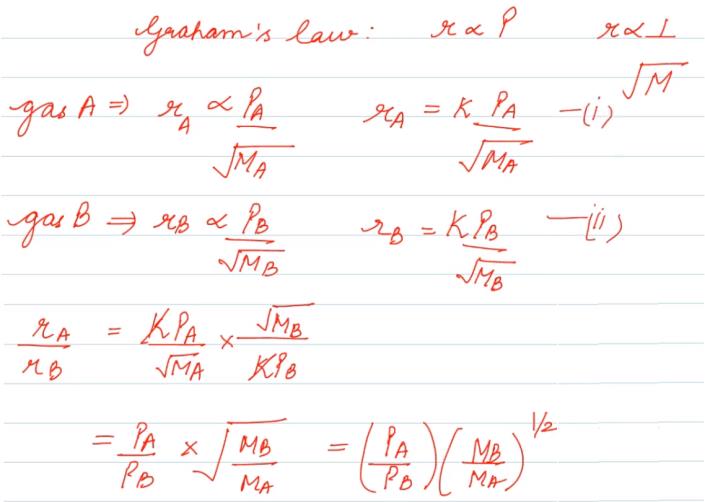 Graham's law: r ∝ P r ∝ 1/√M
gas A ⇒ r_A ∝ P_A/√M_A r_A = K P_A/√M_A —(i)
gas B ⇒ r_B ∝ P_B/√M_B r_B = K P_B/√M_B —(ii)
r_A/r_B = K P_A/√M_A × √M_B/K P_B
= P_A/P_B × √(M_B/M_A) = (P_A/P_B) (M_B/M_A)^1/2